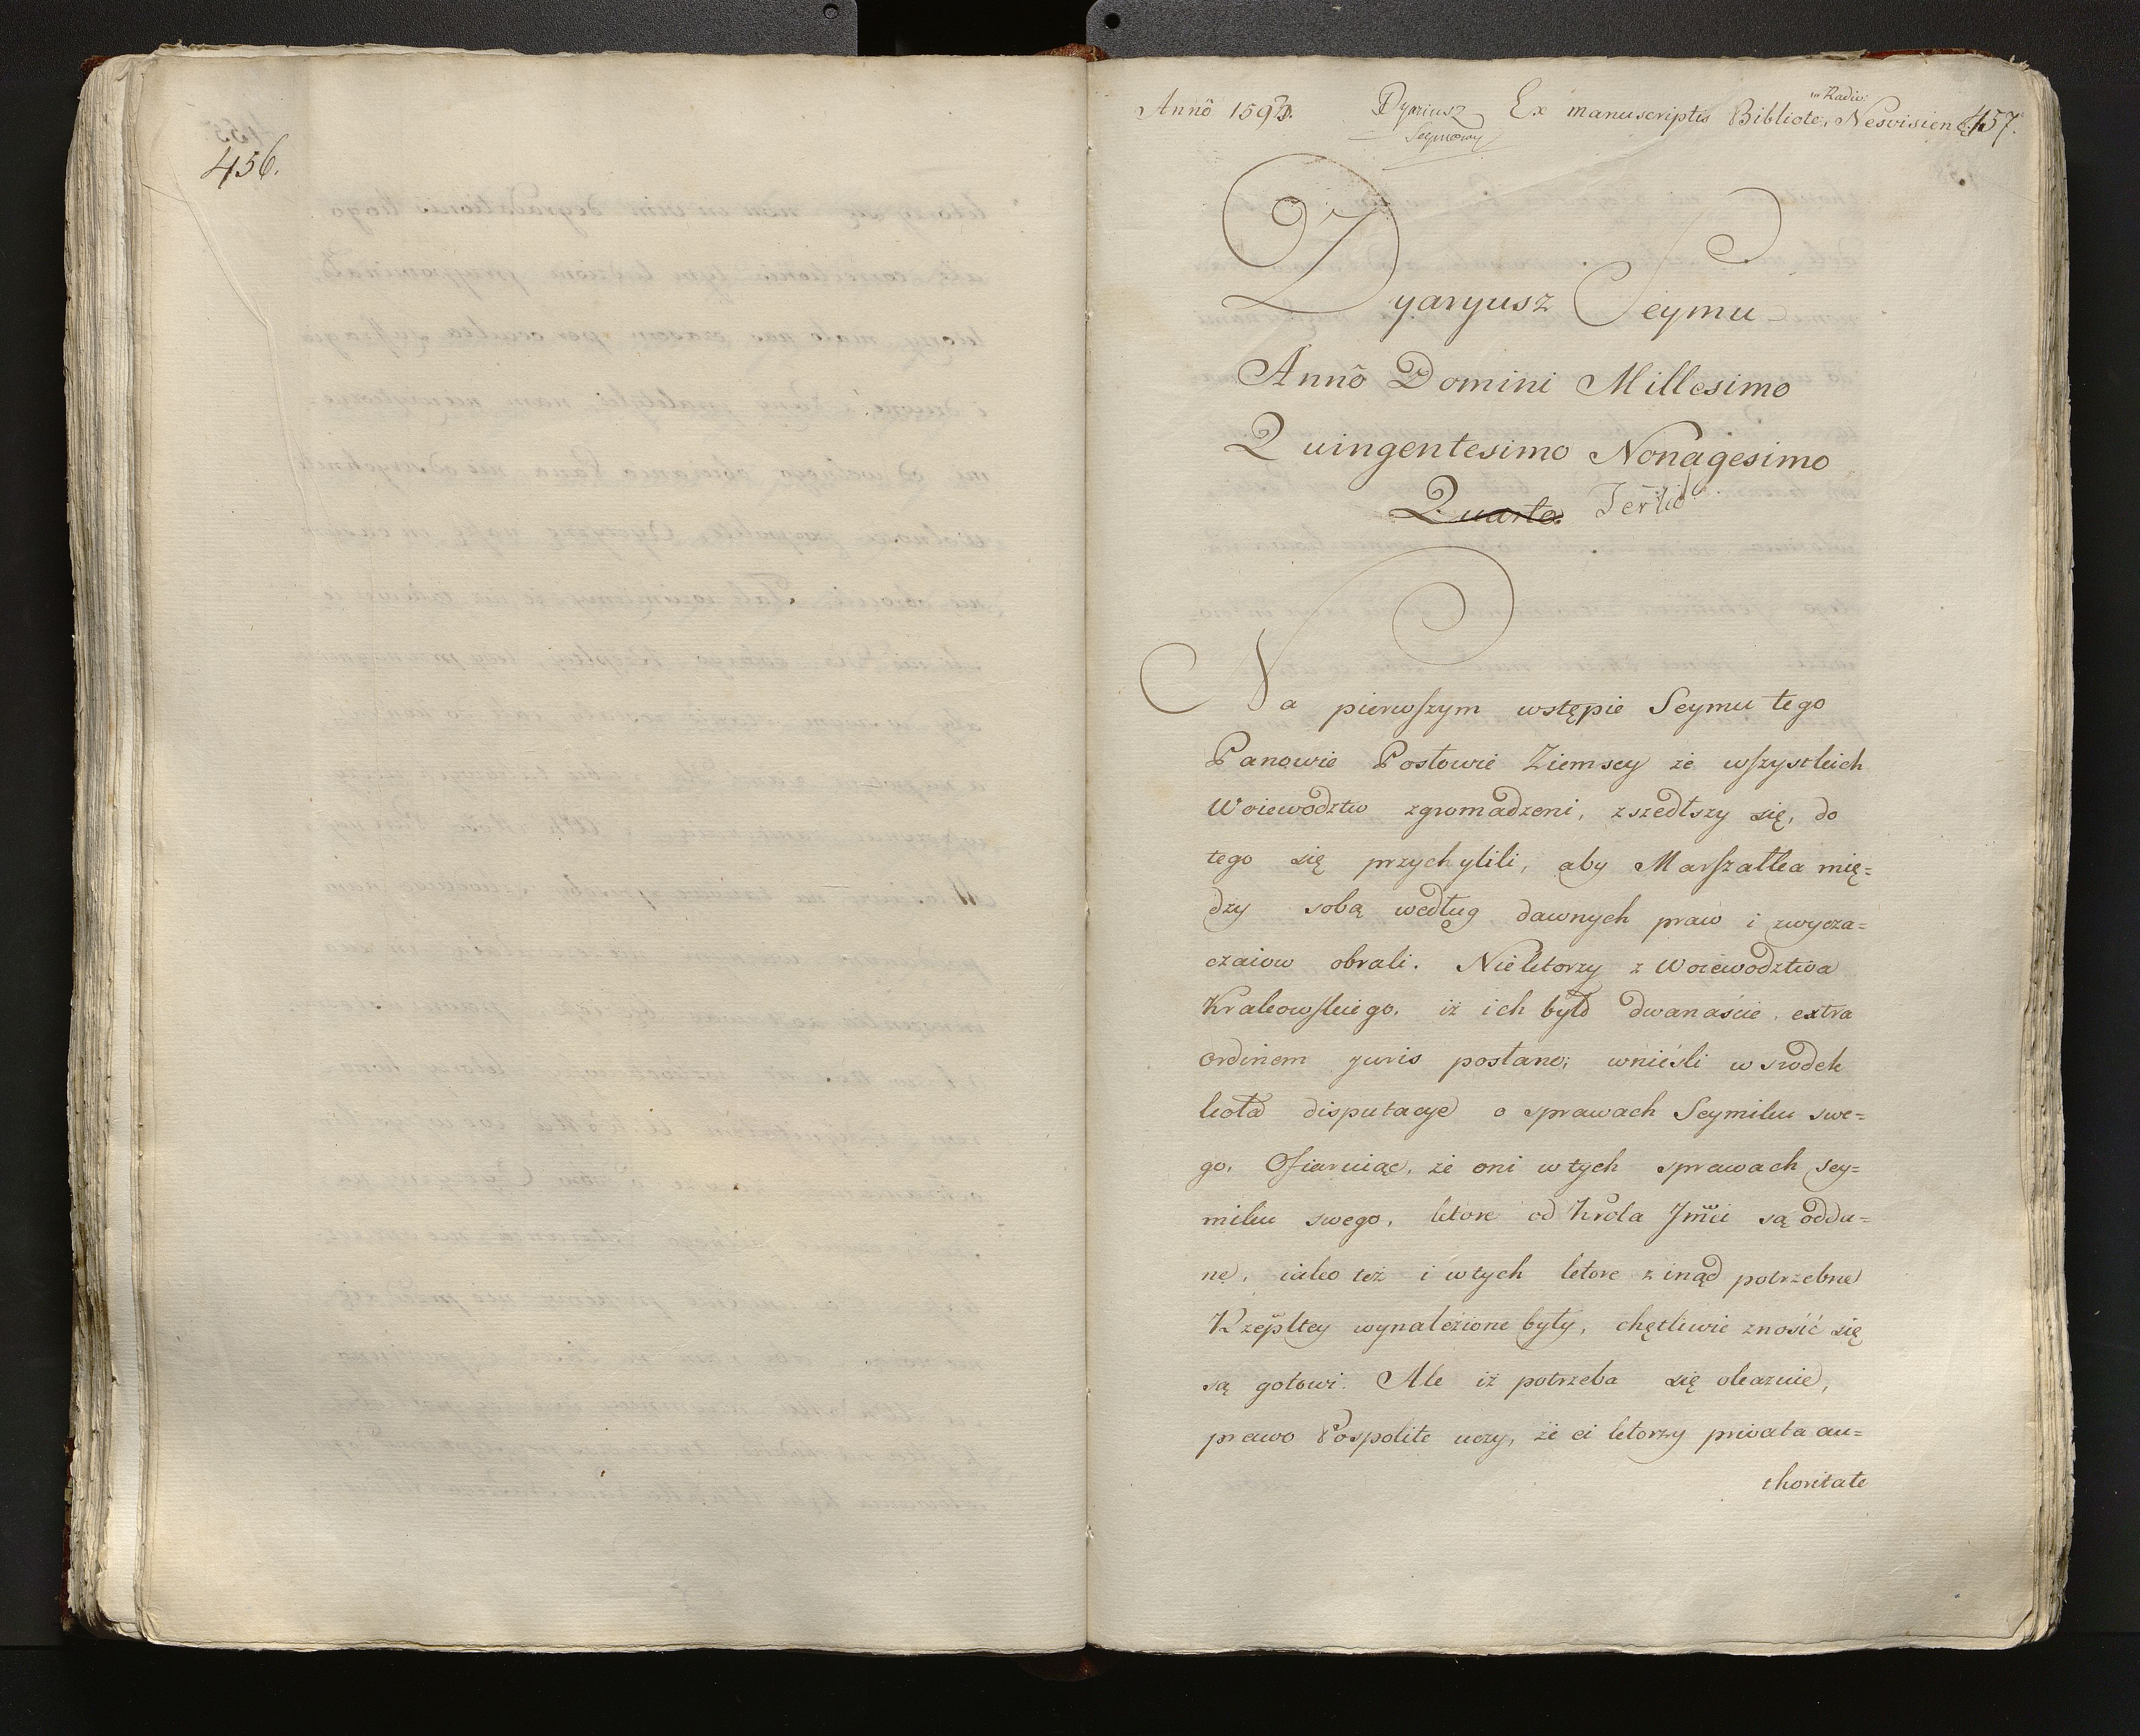 456.
Annô 1593. Dyariusz Ex manuscriptis Bibliote. Radiv: Nesvisien: 457.
Seymowy
Dyaryusz Seymu
Annô Domini Millesimo
Quingentesimo Nonagesimo
Quarto. Tertio.
Na pierwszym wstępie Seymu tego
Panowie Posłowie Ziemscy że wszystkich
Woiewodztw zgromadzeni, zszedłszy się, do
tego się przychylili, aby Marszałka mię=
dzy sobą według dawnych praw i zwycza=
czaiow obrali. Niektorzy z Woiewodztwa
Krakowskiego, iż ich było dwanaście, extra
ordinem juris posłano; wnieśli w srodek
koła disputacye o sprawach Seymiku swe=
go, Ofiaruiąc, że oni w tych sprawach sey=
miku swego, ktore od Króla Jmci są oddu=
ne, iako też i w tych ktore z inąd potrzebne
Rzepltey wynalezione były, chętliwie znosić się
są gotowi. Ale iż potrzeba się okazuie,
prawo Pospolite uczy, że ci ktorzy privata au=
thoritate